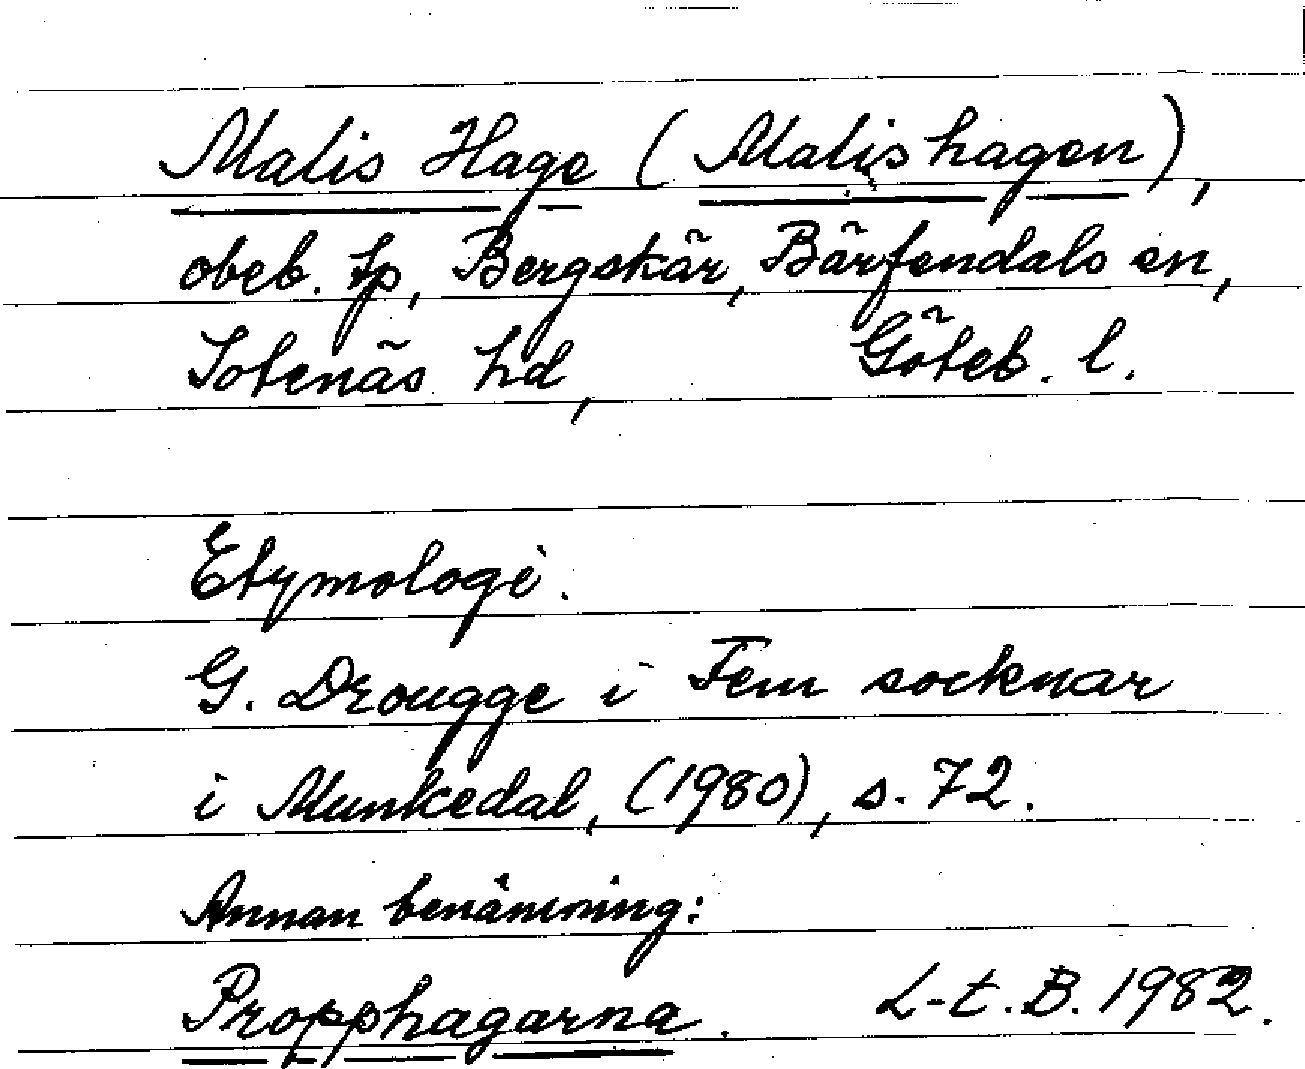 Malis Hage (Malishagen),
obeb. lp, Bergskär, Bärfendals sn,
Sotenäs hd, Göteb. l.
Etymologi.
G. Drougge i Fem socknar
i Munkedal, (1980), s. 72.
Annan benämning:
Propphagarna. L-t. B. 1982.